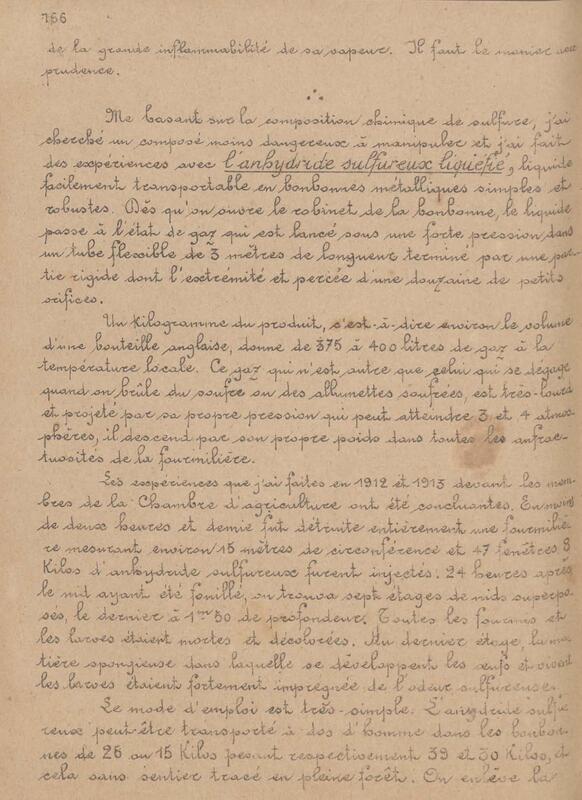 166
de la grande inflammabilité de sa vapeur. Il faut le manier avec
prudence.
Me basant sur la composition chimique de sulfure, j'ai
cherché un composé moins dangereux à manipuler et j'ai fait
des expériences avec l'anhydride sulfureux liquéfié, liquide
facilement transportable en bonbonnes métalliques simples et
robustes. Dès qu'on ouvre le robinet de la bonbonne, le liquide
passe à l'état de gaz qui est lancé sous une forte pression dans
un tube flexible de 3 mètres de longueur terminé par une par-
tie rigide dont l'extrémité est percée d'une douzaine de petits
orifices.
Un Kilogramme du produit, c'est-à-dire environ le volume
d'une bouteille anglaise, donne de 375 à 400 litres de gaz à la
température locale. Ce gaz qui n'est autre que celui qui se dégage
quand on brûle du soufre ou des allumettes soufrées, est très-lourd
et projeté par sa propre pression qui peut atteindre 3 et 4 atmos-
phères, il descend par son propre poids dans toutes les anfrac-
tuosités de la fourmilière.
Les expériences que j'ai faites en 1912 et 1913 devant les mem-
bres de la Chambre d'agriculture ont été concluantes. En moins
de deux heures et demie fut détruite entièrement une fourmiliè-
re mesurant environ 15 mètres de circonférence et 47 fenêtres 8
Kilos d'anhydride sulfureux furent injectés. 24 heures après
le nid ayant été fouillé, on trouva sept étages de nids superpo-
sés, le dernier à 1m 50 de profondeur. Toutes les fourmis et
les larves étaient mortes et décolorées. Au dernier étage, la ma-
tière spongieuse dans laquelle se développent les œufs et vivent
les larves étaient fortement imprégnée de l'odeur sulfureuse.
Le mode d'emploi est très-simple. L'anhydride sulfu-
reux peut être transporté à dos d'homme dans les bonbon-
nes de 26 ou 15 Kilos pesant respectivement 39 et 30 Kilos, et
cela sans sentier tracé en pleine forêt. On enlève la